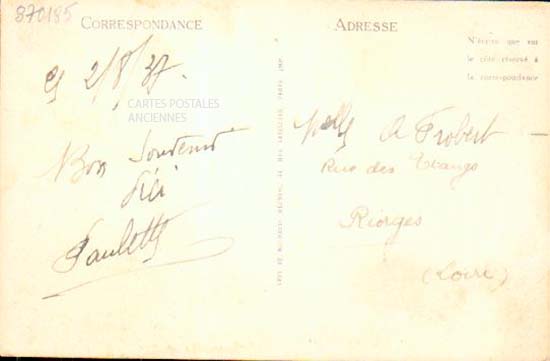 870185
CORRESPONDANCE
2/8/37
CARTES POSTALES
ANCIENNES
Bon Souvenir
Paulette
ADRESSE
N'écrire que sur
le côté réservé à
la correspondance
Melle A Frobert
Rue des Etangs
Riorges
(Loire)